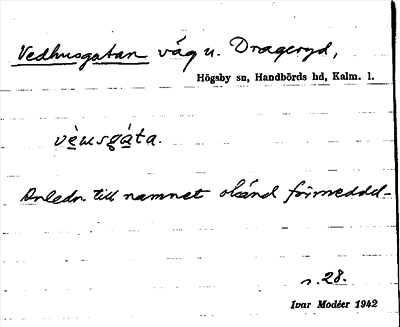 Vedhusgatan väg u. Drageryd,
Högsby sn, Handbörds hd, Kalm. l.
vèusgáta.
Anledn. till namnet okänd för meddel-
s. 28.
Ivar Modéer 1942